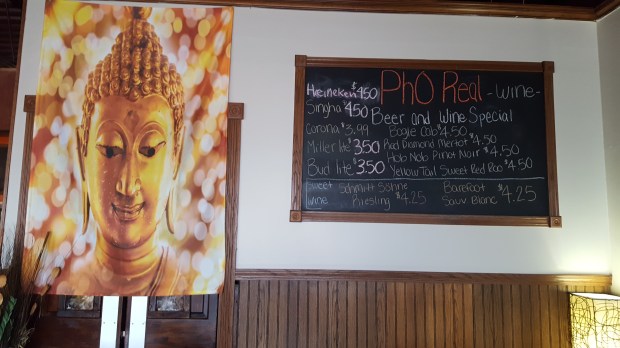 PhO Real -Wine-
Beer and Wine Special
Heineken $4.50
Singha $4.50
Corona $3.99
Miller lite $3.50
Bud lite $3.50
Bogle Cab $4.50
Red Diamond Merlot $4.50
Hob Nob Pinot Noir $4.50
Yellow Tail Sweet Red Roo $4.50
Sweet Wine
Schmitt Söhne
Riesling $4.25
Barefoot
Sauv Blanc $4.25